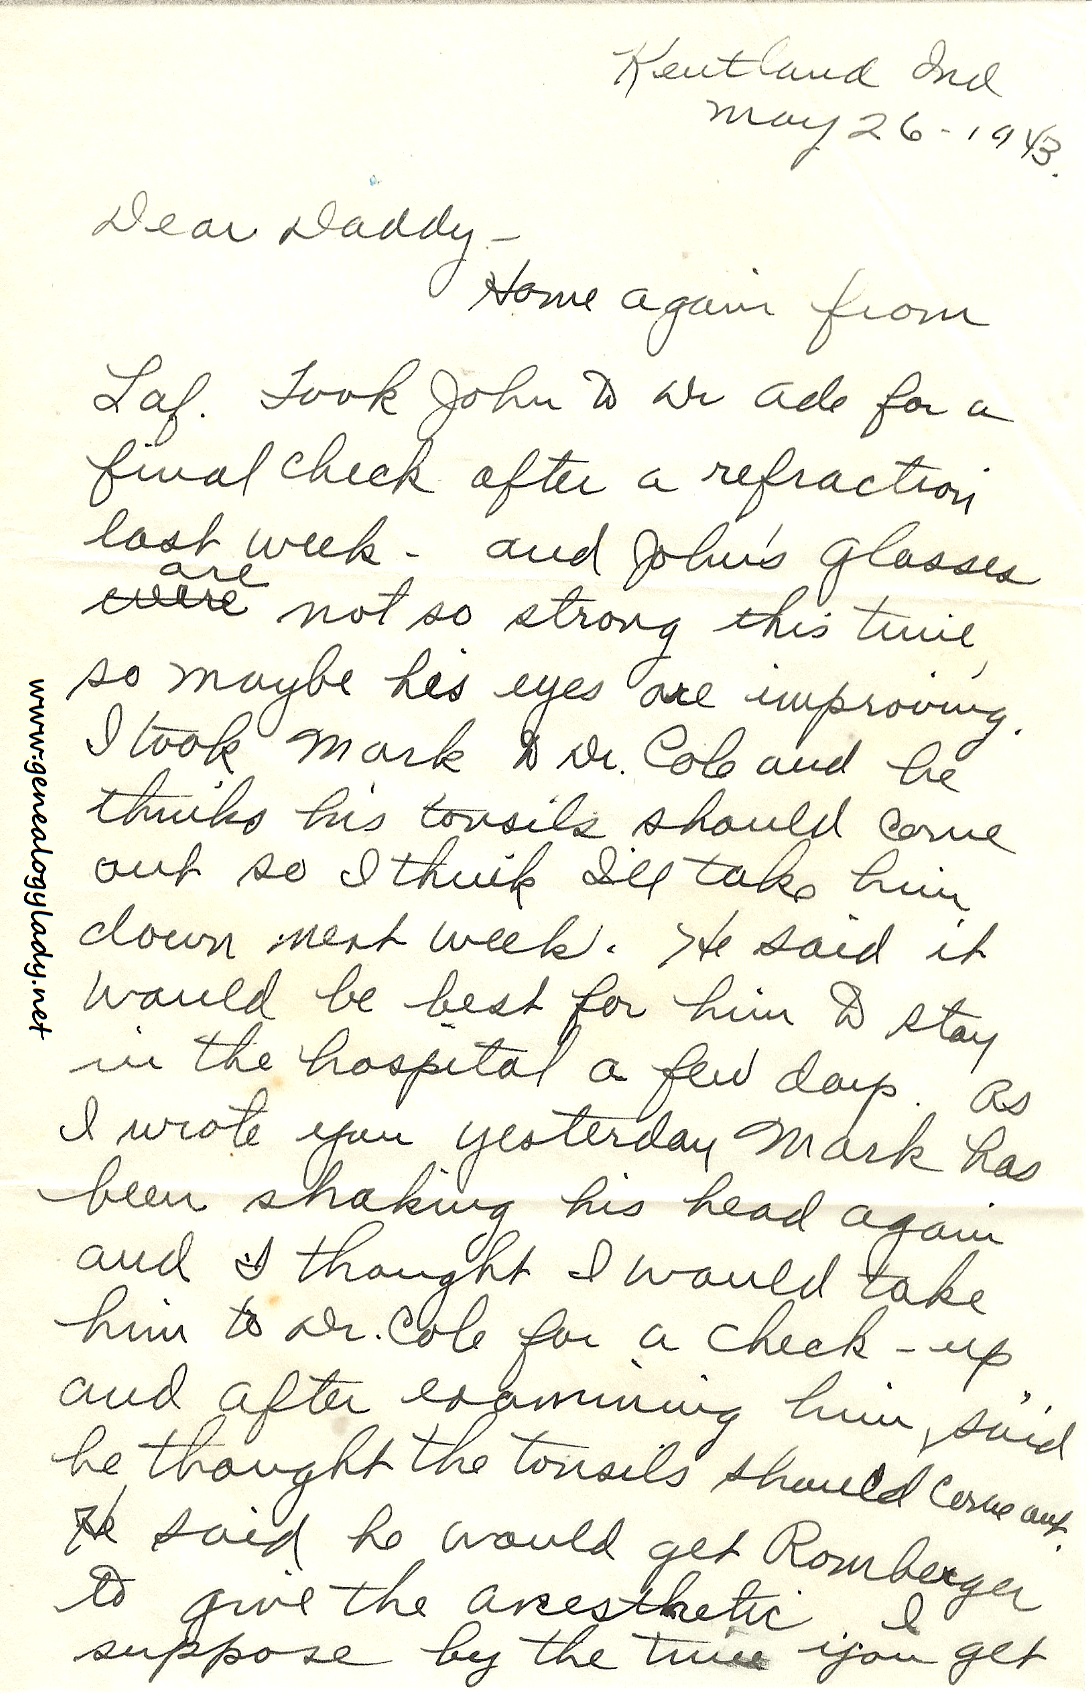 Kentland Ind
May 26-1943.
Dear Daddy-
Home again from
Laf. Took John to Dr Ade for a
final check after a refraction
last week - and John's glasses
are
were not so strong this time,
so maybe his eyes are improving.
I took Mark to Dr. Cole and he
thinks his tonsils should come
out so I think I'll take him
down next week. He said it
would be best for him to stay
in the hospital a few days. As
I wrote you yesterday Mark has
been shaking his head again
and I thought I would take
him to Dr. Cole for a check-up
and after examining him, said
he thought the tonsils should come out.
He said he would get Romberger
to give the anesthetic I
suppose by the time you get
www.genealogylady.net